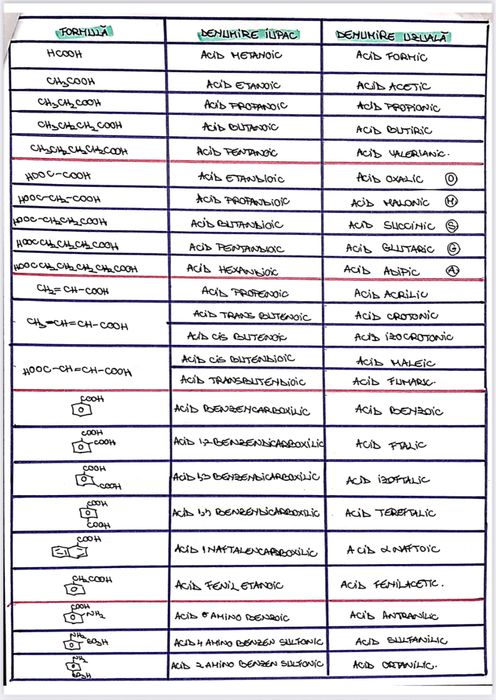 FORMULĂ DENUMIRE IUPAC DENUMIRE UZUALĂ
HCOOH ACID METANOIC ACID FORMIC
CH₃COOH ACID ETANOIC ACID ACETIC
CH₃CH₂COOH ACID PROPANOIC ACID PROPIONIC
CH₃CH₂CH₂COOH ACID BUTANOIC ACID BUTIRIC
CH₃CH₂CH₂CH₂COOH ACID PENTANOIC ACID VALERIANIC.
HOOC-COOH ACID ETANDIOIC ACID OXALIC O
HOOC-CH₂-COOH ACID PROPANDIOIC ACID MALONIC M
HOOC-CH₂CH₂COOH ACID BUTANDIOIC ACID SUCCINIC S
HOOCCH₂CH₂CH₂COOH ACID PENTANDIOIC ACID GLUTARIC G
HOOCCH₂CH₂CH₂CH₂COOH ACID HEXANDIOIC ACID ADIPIC A
CH₂=CH-COOH ACID PROPENOIC ACID ACRILIC
CH₃=CH=CH-COOH ACID TRANS BUTENOIC ACID CROTONIC
ACID CIS BUTENOIC ACID IZOCROTONIC
HOOC-CH=CH-COOH ACID CIS BUTENDIOIC ACID MALEIC
ACID TRANSBUTENDIOIC ACID FUMARIC.
COOH ACID BENZENCARBOXILIC ACID BENZOIC
COOH COOH ACID 1,2 BENZENDICARBOXILIC ACID FTALIC
COOH COOH ACID BENZENDICARBOXILIC ACID IZOFTALIC
COOH COOH ACID BENZENDICARBOXILIC ACID TEREFTALIC
COOH ACID 1 NAFTALENCARBOXILIC ACID α NAFTOIC
CH₂COOH ACID FENIL ETANOIC ACID FENILACETIC.
COOH NH₂ ACID o AMINO BENZOIC ACID ANTRANILIC
NH₂ SO₃H ACID 4 AMINO BENZEN SULFONIC ACID SULFANILIC
NH₂ SO₃H ACID 2 AMINO BENZEN SULFONIC ACID ORTANILIC.